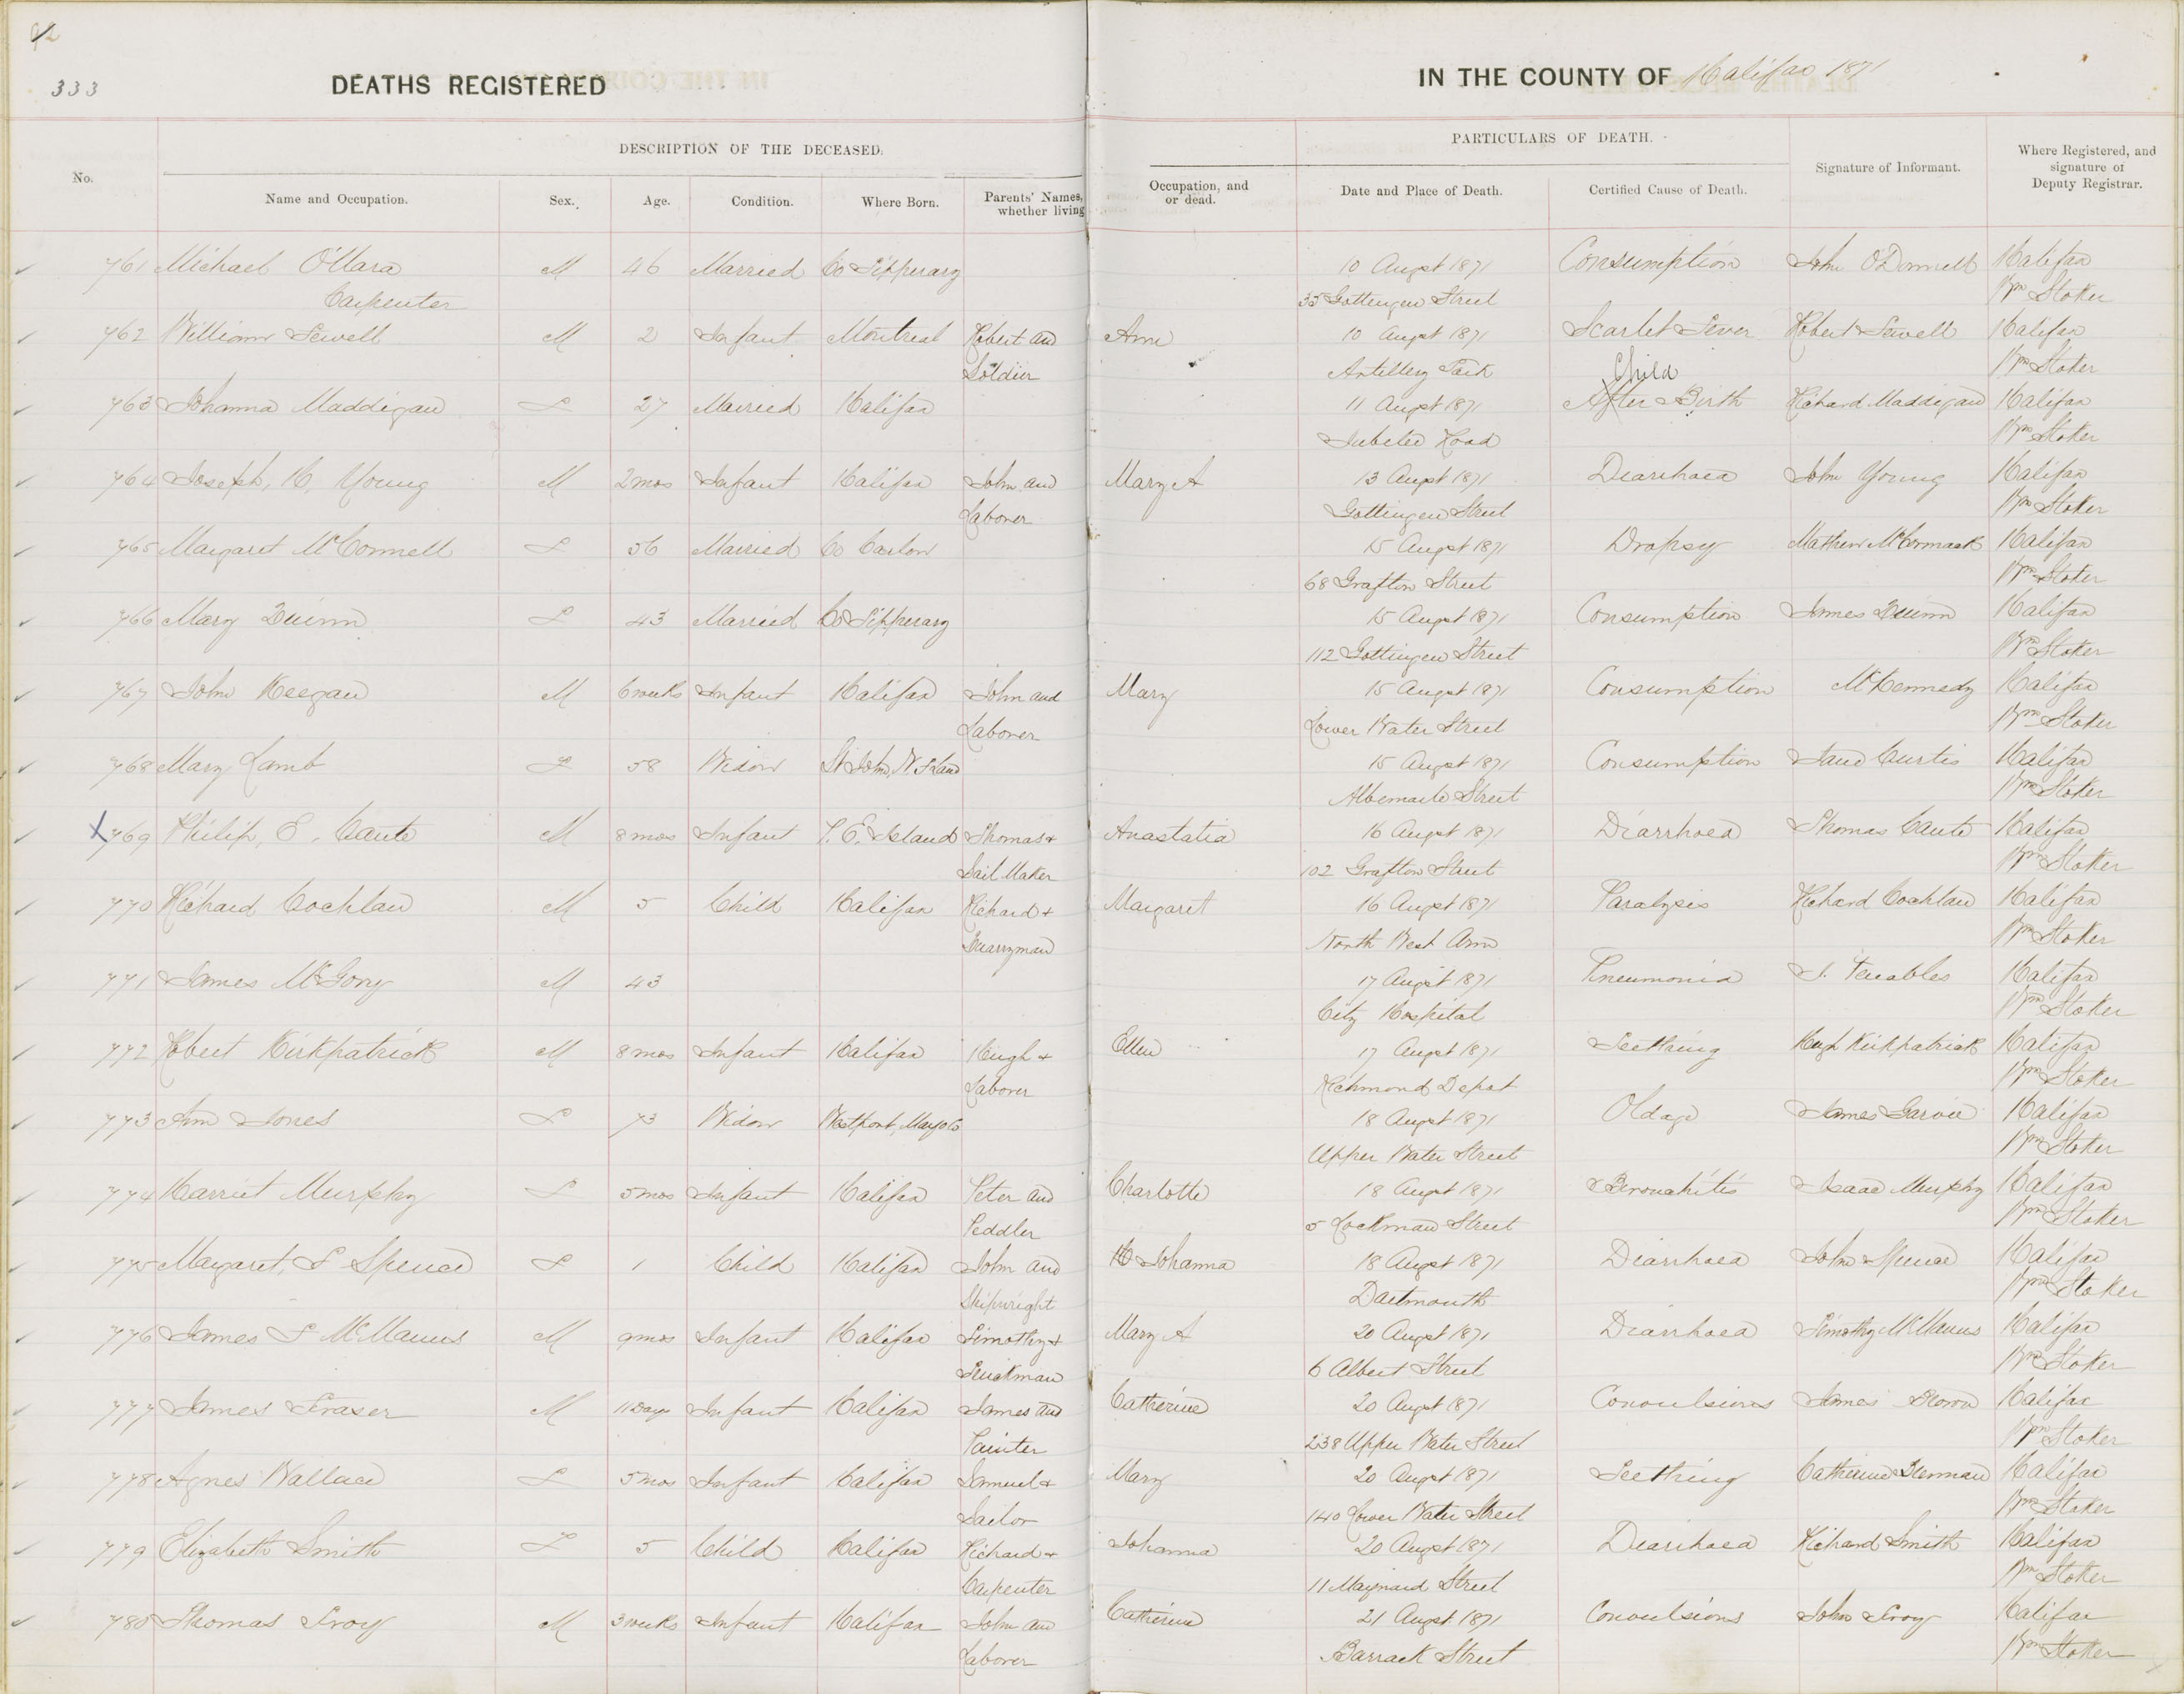 92
333
DEATHS REGISTERED IN THE COUNTY OF Halifax 1871
No.
DESCRIPTION OF THE DECEASED.
PARTICULARS OF DEATH.
Signature of Informant.
Where Registered, and signature of Deputy Registrar.
Name and Occupation. Sex. Age. Condition. Where Born. Parents' Names, whether living Occupation, and or dead. Date and Place of Death. Certified Cause of Death.
761 Michael O'Mara M 46 Married Co Tipperary 10 Augst 1871 Consumption John O'Donnell Halifax
Carpenter 35 Gottengen Street Wm Stoker
762 William Sewell M 2 Infant Montreal Robert and Ann 10 Augst 1871 Scarlet Fever Robert Sewell Halifax
Soldier Artillery Park Wm Stoker
763 Johanna Maddigan F 27 Married Halifax 11 Augst 1871 After Child Birth Richard Maddigan Halifax
Jubelee Road Wm Stoker
764 Joseph, H, Young M 2 mos Infant Halifax John and Mary A 13 Augst 1871 Diarrhoea John Young Halifax
Laborer Gottingen Street Wm Stoker
765 Margaret McConnell F 56 Married Co Carlow 15 Augst 1871 Dropsy Mathew McCormack Halifax
68 Grafton Street Wm Stoker
766 Mary Quinn F 43 Married Co Tipperary 15 Augst 1871 Consumption James Quinn Halifax
112 Gottingen Street Wm Stoker
767 John Keegan M 6 weeks Infant Halifax John and Mary 15 Augst 1871 Consumption McKennedy Halifax
Laborer Lower Water Street Wm Stoker
768 Mary Lamb F 58 Widow St John, N.F. Land 15 Augst 1871 Consumption Curtis Halifax
Albemarle Street Wm Stoker
X 769 Philip, E, Caute M 8 mos Infant P. E. Island Thomas + Anastatia 16 Augst 1871 Diarrhoea Thomas Caute Halifax
Sail Maker 102 Grafton Street Wm Stoker
770 Richard Cochlan M 5 Child Halifax Richard + Margaret 16 Augst 1871 Paralysis Richard Cochlan Halifax
Quarryman North West Arm Wm Stoker
771 James McGory M 43 17 Augst 1871 Pneumonia J. Venables Halifax
City Hospital Wm Stoker
772 Robert Kirkpatrick M 8 mos Infant Halifax Hugh + Ellen 17 Augst 1871 Teething Hugh Kirkpatrick Halifax
Laborer Richmond Depot Wm Stoker
773 Ann Jones F 73 Widow Westport, Mayo Co 18 Augst 1871 Old age James Garvie Halifax
Upper Water Street Wm Stoker
774 Harriet Murphy F 5 mos Infant Halifax Peter and Charlotte 18 Augst 1871 Bronchitis Isaac Murphy Halifax
Peddler 5 Lockman Street Wm Stoker
775 Margaret, F Spence F 1 Child Halifax John and Johanna 18 Augst 1871 Diarrhoea John Spence Halifax
Shipwright Dartmouth Wm Stoker
776 James F McManus M 9 mos Infant Halifax Timothy + Mary A 20 Augst 1871 Diarrhoea Timothy McManus Halifax
Truckman 6 Albert Street Wm Stoker
777 James Fraser M 11 Days Infant Halifax James and Catherine 20 Augst 1871 Convulsions James Halifax
Painter 238 Upper Water Street Wm Stoker
778 Agnes Wallace F 5 mos Infant Halifax Samuel + Mary 20 Augst 1871 Teething Catherine Halifax
Sailor 140 Lower Water Street Wm Stoker
779 Elizabeth Smith F 5 Child Halifax Richard + Johanna 20 Augst 1871 Diarrhoea Richard Smith Halifax
Carpenter 11 Maynard Street Wm Stoker
780 Thomas Troy M 3 weeks Infant Halifax John and Catherine 21 Augst 1871 Convulsions John Troy Halifax
Laborer Barrack Street Wm Stoker